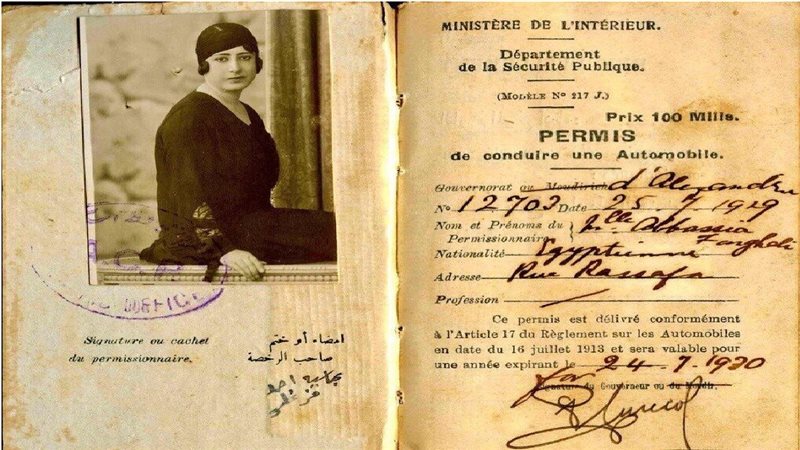 Signature ou cachet
du permissionnaire.
امضاء أو ختم
صاحب الرخصة
MINISTÈRE DE L'INTÉRIEUR.
Département
de la Sécurité Publique.
(MODÈLE No 217 J.)
Prix 100 Mills.
PERMIS
de conduire une Automobile.
Gouvernorat ou Moudirieh d'Alexandrie
No 12703 Date 25.7 1929
Nom et Prénoms du Mlle Abbassia
Permissionnaire Farghali
Nationalité Egyptienne
Adresse Rue Rassafa
Profession
Ce permis est délivré conformément
à l'Article 17 du Règlement sur les Automobiles
en date du 16 juillet 1913 et sera valable pour
une année expirant le 24.7.1930
Signature du Gouverneur ou du Moudir.